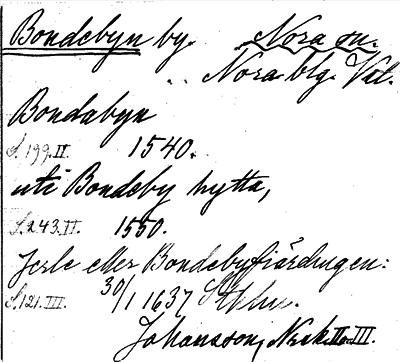 Bondebyn by. Nora sn.
Nora blg. Vstl.
Bondabyn
S. 199. II. 1540.
uti Bondeby hytta,
S. 243. II. 1550.
Jerle eller Bondebyfjärdingen:
S. 121. III. 30/1 1637 Sthlm.
Johansson, Nsk. II o. III.